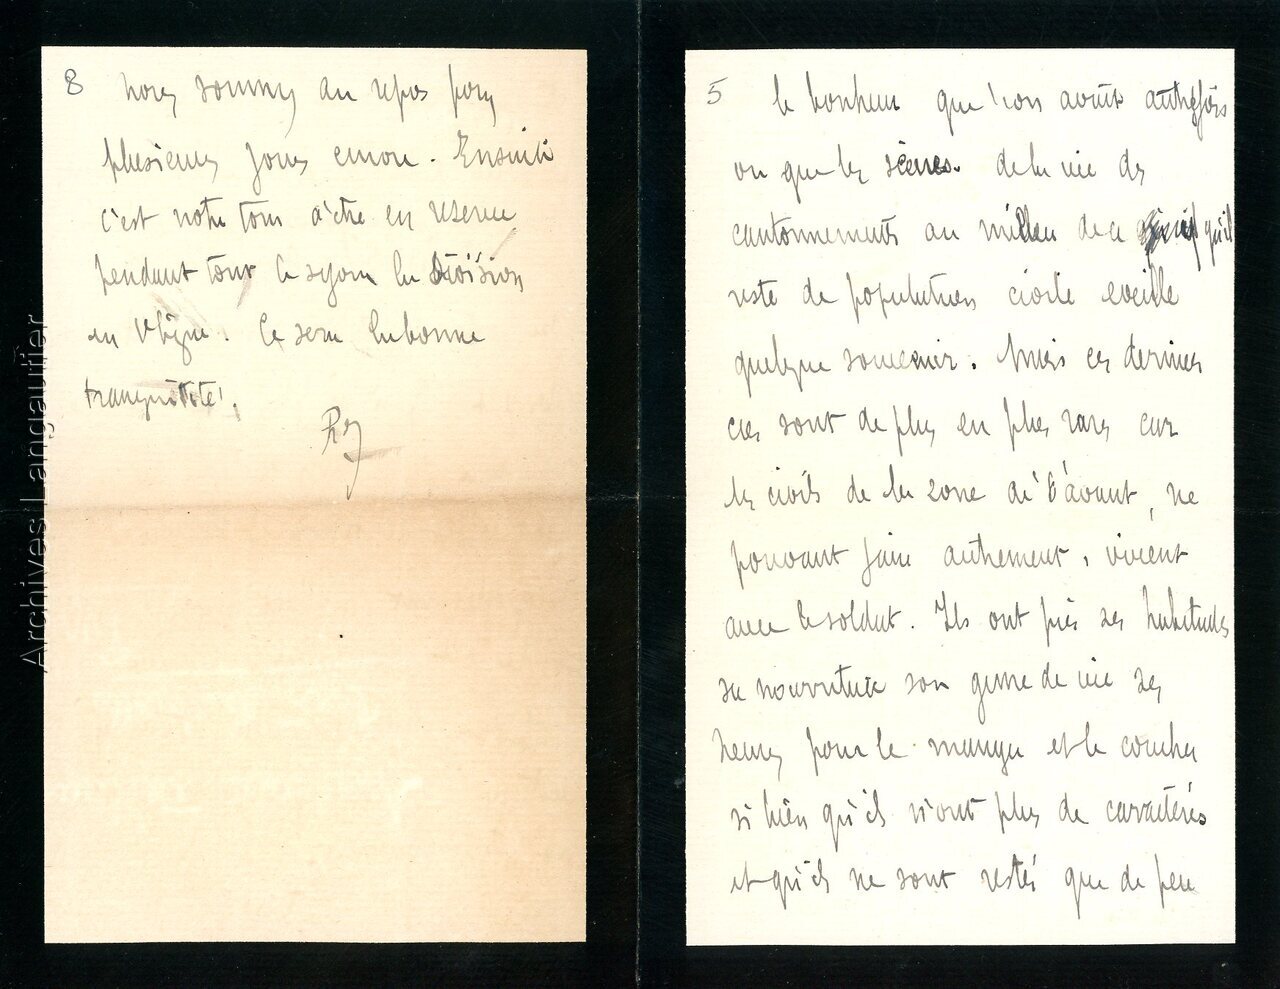 8
nous sommes au repos pour
plusieurs jours encore. Ensuite
c'est notre tour d'être en réserve
pendant tout le séjour la division
en ligne. Ce sera la bonne
tranquillité.
5
le bonheur que l'on avait autrefois
ou que les scènes. de la vie des
cantonnements au milieu de ce qu'il
reste de population civile éveille
quelque souvenir. Mais ces derniè
res sont de plus en plus rares car
les civils de la zone de l'avant, ne
pouvant faire autrement, vivent
avec le soldat. Ils ont pris ses habitudes
sa nourriture son genre de vie ses
heures pour le manger et le coucher
si bien qu'ils n'ont plus de caractères
et qu'ils ne sont restés que de peu
Archives Langautier